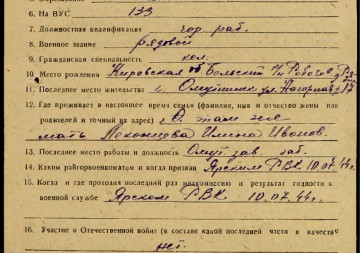 6. На ВУС 133
7. Должностная квалификация чор. раб.
8. Военное звание рядовой
9. Гражданская специальность кол.
10. Место рождения Кировская обл.
11. Последнее место жительства г. Омутнинск ул. Нагорная
12. Где проживает в настоящее время семья (фамилия, имя и отчество жены или
родителей и точный их адрес) там же
мать Иванов.
13. Последнее место работы и должность Омут. зав. раб.
14. Каким райгорвоенкоматом и когда призван Ярским РВК 10.07.44 г.
15. Когда и где проходил последний раз медкомиссию и результат годности к
военной службе Ярском РВК 10.07.44 г.
16. Участие в Отечественной войне (в составе какой последней части и в качестве
нет.